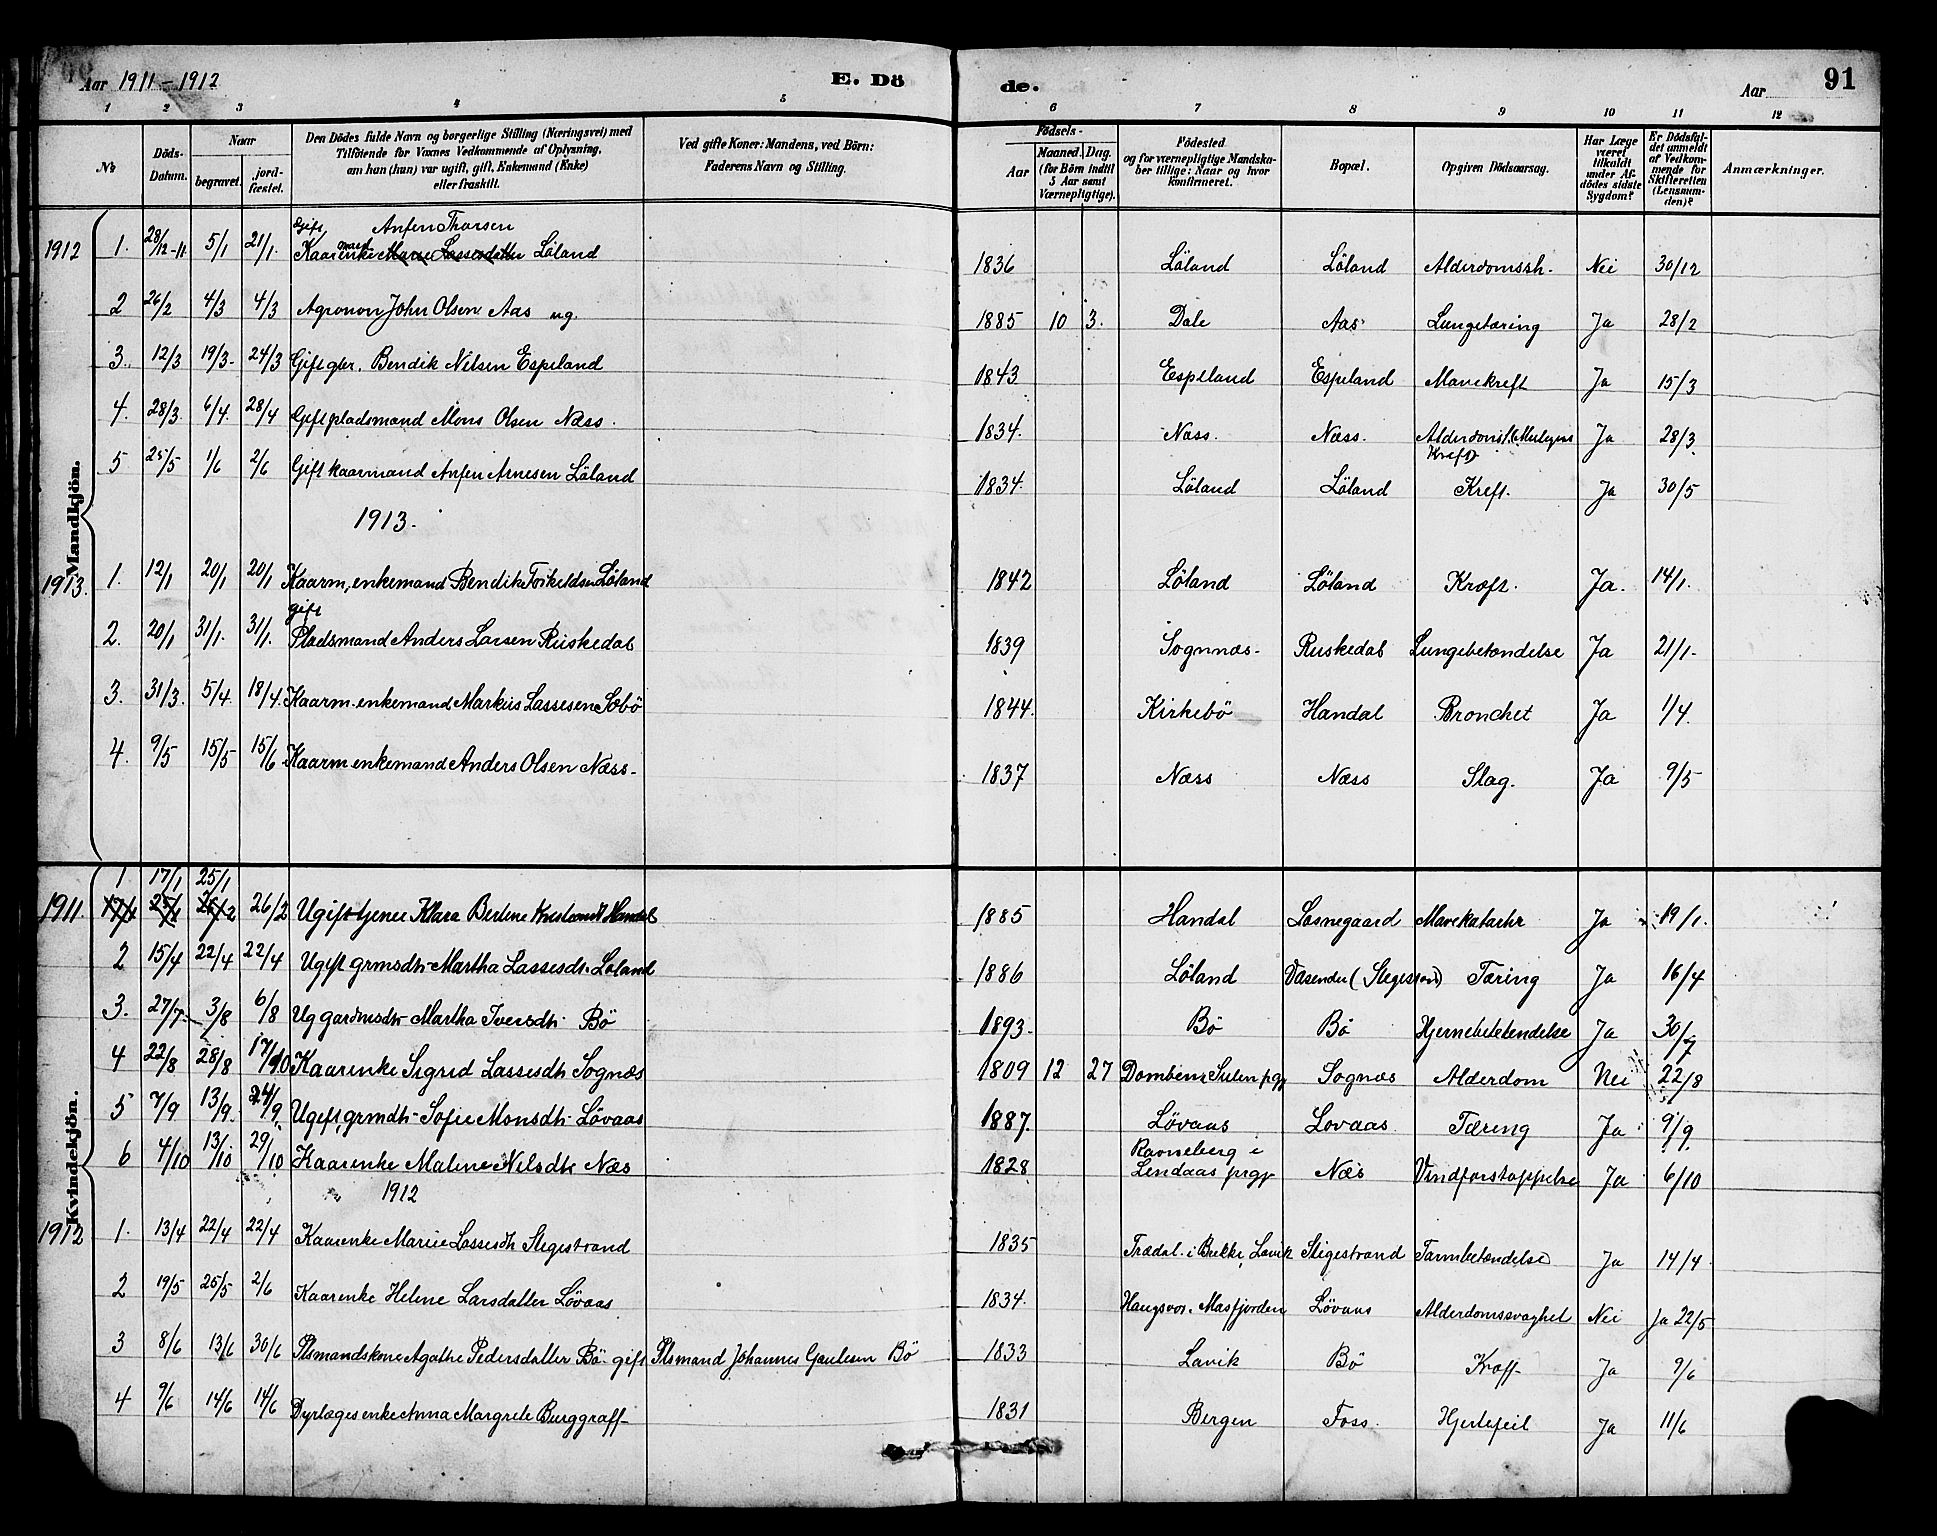 Aar 1911-1912 E. Dö de. Aar 91
1 2 3 4 5 6 7 8 9 10 11 12
№ Döds-Datum. Naar begravet. jordfæstet. Den Dödes fulde Navn og borgerlige Stilling (Næringsvei) med Tilföiende for Voxnes Vedkommende af Oplysning, om han (hun) var ugift, gift, Enkemand (Enke) eller fraskilt. Ved gifte Koner: Mandens, ved Börn: Faderens Navn og Stilling. Födsels- Aar Maaned. Dag. (for Börn indtil 5 Aar samt Værnepligtige). Födested og for værnepligtige Mandskaber tillige: Naar og hvor konfirmeret. Bopæl. Opgiven Dödsaarsag. Har Læge været tilkaldt under Afdödes sidste Sygdom? Er Dödsfaldet anmeldt af Vedkommende for Skifteretten (Lensmanden)? Anmærkninger.
Mandkjön.
Gift Anfen Thorsen
1912 1. 28/12-11 5/1 21/1. Kaarenkemand Marie Lassesdatter Löland 1836 Löland Löland Alderdomssh. Nei 30/12
2 26/2 4/3 4/3 Agronon John Olsen Aas ug. 1885 10 3. Dale Aas Lungetæring Ja 28/2
3. 12/3 19/3. 24/3 Gift gbr. Bendik Nilsen Espeland 1843 Espeland Espeland Mavekreft Ja 15/3
4. 28/3. 6/4. 28/4 Gift pladsmand Mons Olsen Næss. 1834. Næss. Næss. Alderdom Kreft) Ja 28/3.
5 25/5 1/6 2/6 Gift kaarmand Anfen Arnesen Löland 1834. Löland Löland Kreft. Ja 30/5
1913.
1913. 1. 12/1 20/1 20/1 Kaarm, enkemand Bendik Torkildsn Löland 1842 Löland Löland Kræft. Ja. 14/1.
gift
2. 20/1 31/1. 31/1. Pladsmand Anders Larsen Ruskedal 1839 Sognnæs- Ruskedal Lungebetændelse Ja 21/1-
3. 31/3. 5/4. 18/4. Kaarm. enkemand Markus Lassesen Sæbö 1844. Kirkebö Handal Bronchet Ja 1/4.
4. 9/5 15/5 15/6 Kaarm enkemand Anders Olsen Næss- 1837 Næss Næss Slag. Ja 9/5
Kvindekjön.
1 17/1 25/1
1911. 17/1 25/1 26/2 26/2 Ugift tjener Klara Bertine Handal 1885 Handal Lasnegaard Mavekatarhr Ja 19/1.
2 15/4 22/4 22/4 Ugift grmsdtr- Martha Lassesdtr. Löland 1886 Löland Vasenden (Stegestrand) Tæring Ja 16/4
3. 27/7- 3/8 6/8 Ug gardmsdtr Martha Iversdtr Bö 1893. Bö Bö Hjernebetændelse Ja 30/7
4 22/8 28/8 17/10 Kaarenke Sigrid Lassesdtr Sognæs 1809 12 27 Domben, Sulen prgj Sognæs Alderdom Nei 22/8
5 7/9 13/9. 24/9. Ugift, grmdtr- Sofie Monsdtr- Lövaas 1887. Lövaas Lovaas Tæring Ja 9/9.
6 4/10 13/10 29/10 Kaarenke Malene Nilsdtr Næs 1828 Ravneberg i Lindaas prgj Næs Vindforstoppelse Ja 6/10
1912
1912 1. 13/4 22/4 22/4 Kaarenke Marie Lassesdtr Stegestrand 1835 Trædal i Brekke, Lavik Stigestrand Tarmbetændelse Ja 14/4
2 19/5 25/5 2/6 Kaarenke Helene Larsdatter Lövaas 1834. Haugsvær. Masfjorden Lövaas Alderdomssvaghet Nei Ja 22/5
3 8/6 13/6 30/6 Plsmandskone Agathe Pedersdatter Bö- gift Plsmand Johannes Gaulesen Bö 1833 Lavik Bö Kræft Ja 9/6
4 9/6 14/6 14/6 Dyrlæges enke Anna Margrete Burggraff- 1831 Bergen Foss. Hjertefeil Ja 11/6